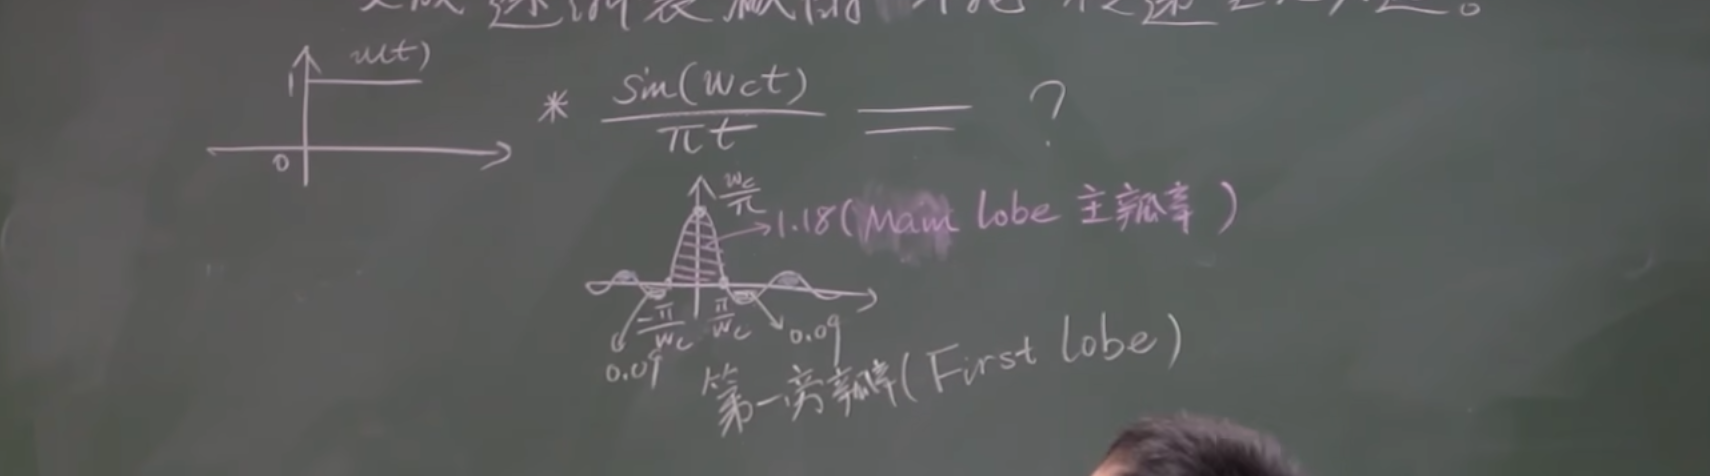 u(t)
1
0
* sin(wct) / πt = ?
wc/π
1.18(Main lobe 主瓣率)
-π/wc π/wc
0.09 0.09
第一旁瓣率(First lobe)